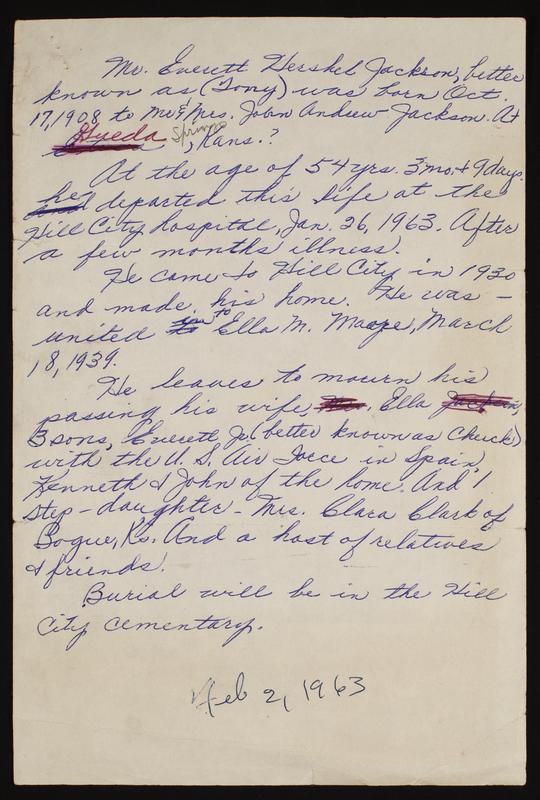 Mr. Everett Hershel Jackson, better
known as (Tony) was born Oct.
17, 1908 to Mr & Mrs. John Andrew Jackson. At
Hueda Springs, Kans.?
At the age of 54 yrs. 3 mo. + 9 days.
he departed this life at the
Hill City hospital, Jan. 26, 1963. After
a few months illness.
He came to Hill City in 1930
and made his home. He was -
united to Ella M. Magee, March
18, 1939.
He leaves to mourn his
passing his wife, Mrs. Ella Jackson,
3 sons, Everett Jr. (better known as Chuck)
with the U.S. Air Force in Spain,
Kenneth & John of the home. And 1
step-daughter - Mrs. Clara Clark of
Bogue, Ks. And a host of relatives
& friends.
Burial will be in the Hill
City cementary.
Feb 2, 1963